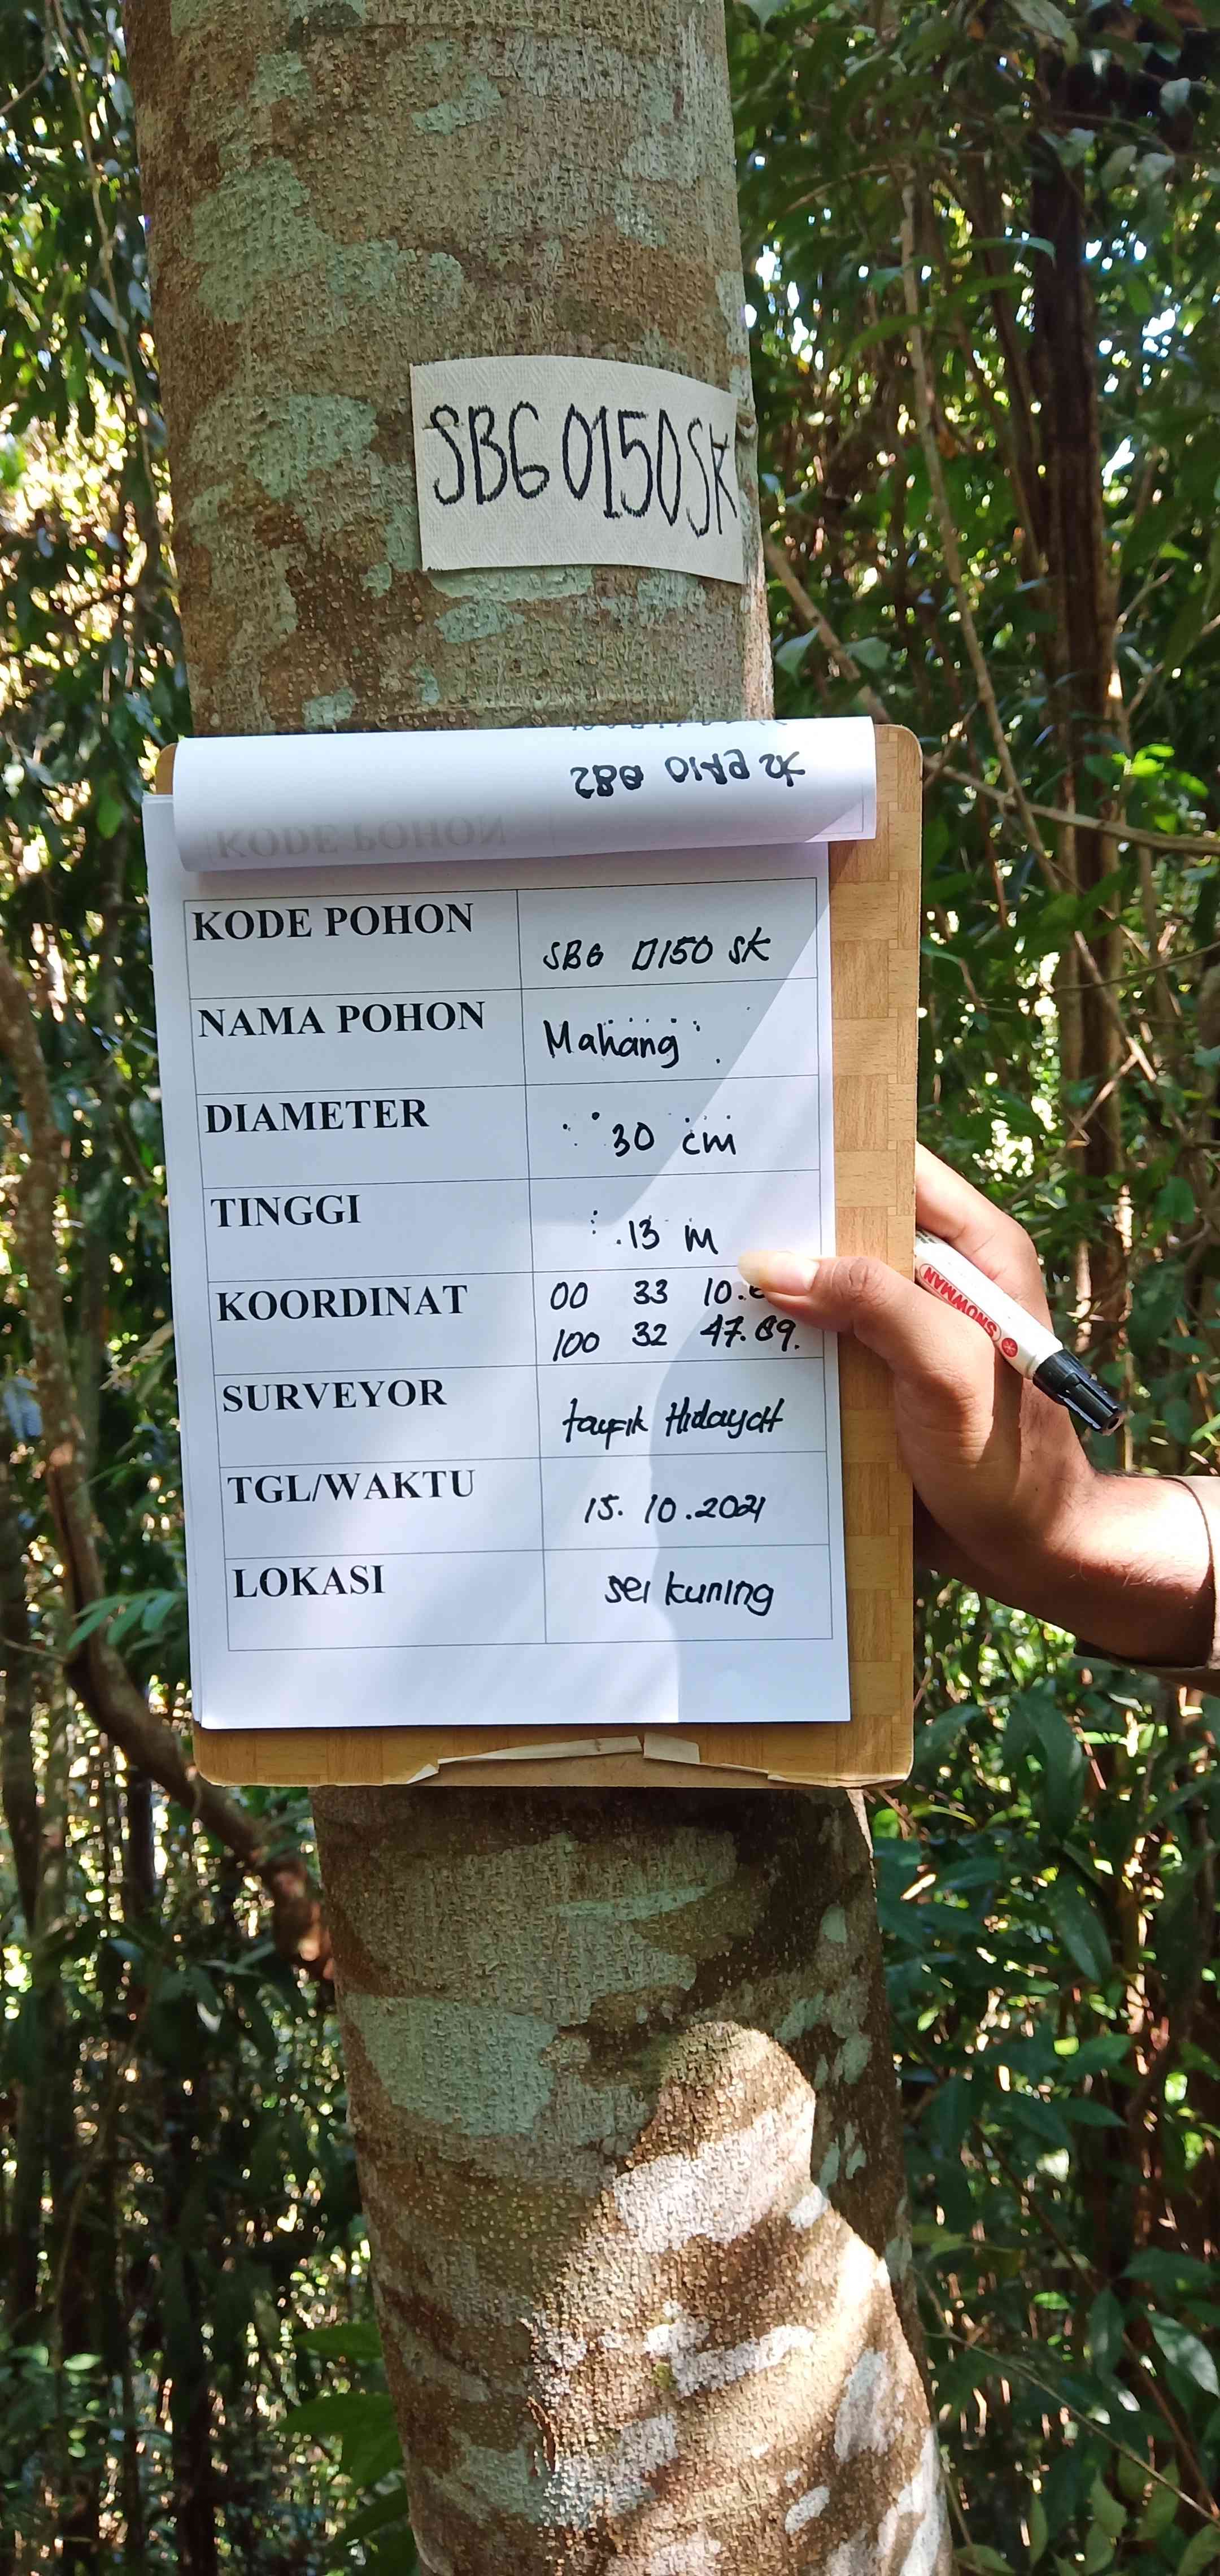 SBG 0150 SK
KODE POHON
KODE POHON
SBG 0150 SK
NAMA POHON
Mahang
DIAMETER
30 cm
TINGGI
13 m
KOORDINAT
00 33 10.
100 32 47.89.
SURVEYOR
taufik Hidayat
TGL/WAKTU
15.10.2021
LOKASI
sei kuning
SNOWMAN